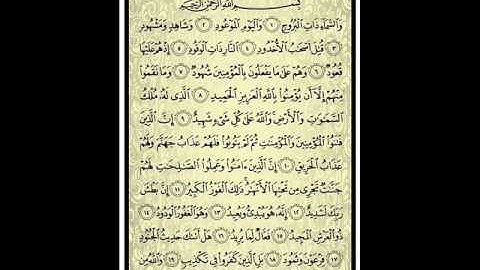 بِسْمِ اللَّهِ الرَّحْمَٰنِ الرَّحِيمِ
وَالسَّمَاءِ ذَاتِ الْبُرُوجِ ١ وَالْيَوْمِ الْمَوْعُودِ ٢ وَشَاهِدٍ وَمَشْهُودٍ
٣ قُتِلَ أَصْحَابُ الْأُخْدُودِ ٤ النَّارِ ذَاتِ الْوَقُودِ ٥ إِذْ هُمْ عَلَيْهَا
قُعُودٌ ٦ وَهُمْ عَلَىٰ مَا يَفْعَلُونَ بِالْمُؤْمِنِينَ شُهُودٌ ٧ وَمَا نَقَمُوا
مِنْهُمْ إِلَّا أَن يُؤْمِنُوا بِاللَّهِ الْعَزِيزِ الْحَمِيدِ ٨ الَّذِي لَهُ مُلْكُ
السَّمَٰوَٰتِ وَالْأَرْضِ وَاللَّهُ عَلَىٰ كُلِّ شَيْءٍ شَهِيدٌ ٩ إِنَّ الَّذِينَ
فَتَنُوا الْمُؤْمِنِينَ وَالْمُؤْمِنَٰتِ ثُمَّ لَمْ يَتُوبُوا فَلَهُمْ عَذَابُ جَهَنَّمَ وَلَهُمْ
عَذَابُ الْحَرِيقِ ١٠ إِنَّ الَّذِينَ ءَامَنُوا وَعَمِلُوا الصَّٰلِحَٰتِ لَهُمْ
جَنَّٰتٌ تَجْرِي مِن تَحْتِهَا الْأَنْهَٰرُ ذَٰلِكَ الْفَوْزُ الْكَبِيرُ ١١ إِنَّ بَطْشَ
رَبِّكَ لَشَدِيدٌ ١٢ إِنَّهُ هُوَ يُبْدِئُ وَيُعِيدُ ١٣ وَهُوَ الْغَفُورُ الْوَدُودُ ١٤
ذُو الْعَرْشِ الْمَجِيدُ ١٥ فَعَّالٌ لِّمَا يُرِيدُ ١٦ هَلْ أَتَىٰكَ حَدِيثُ الْجُنُودِ
١٧ فِرْعَوْنَ وَثَمُودَ ١٨ بَلِ الَّذِينَ كَفَرُوا فِي تَكْذِيبٍ ١٩ وَاللَّهُ مِن